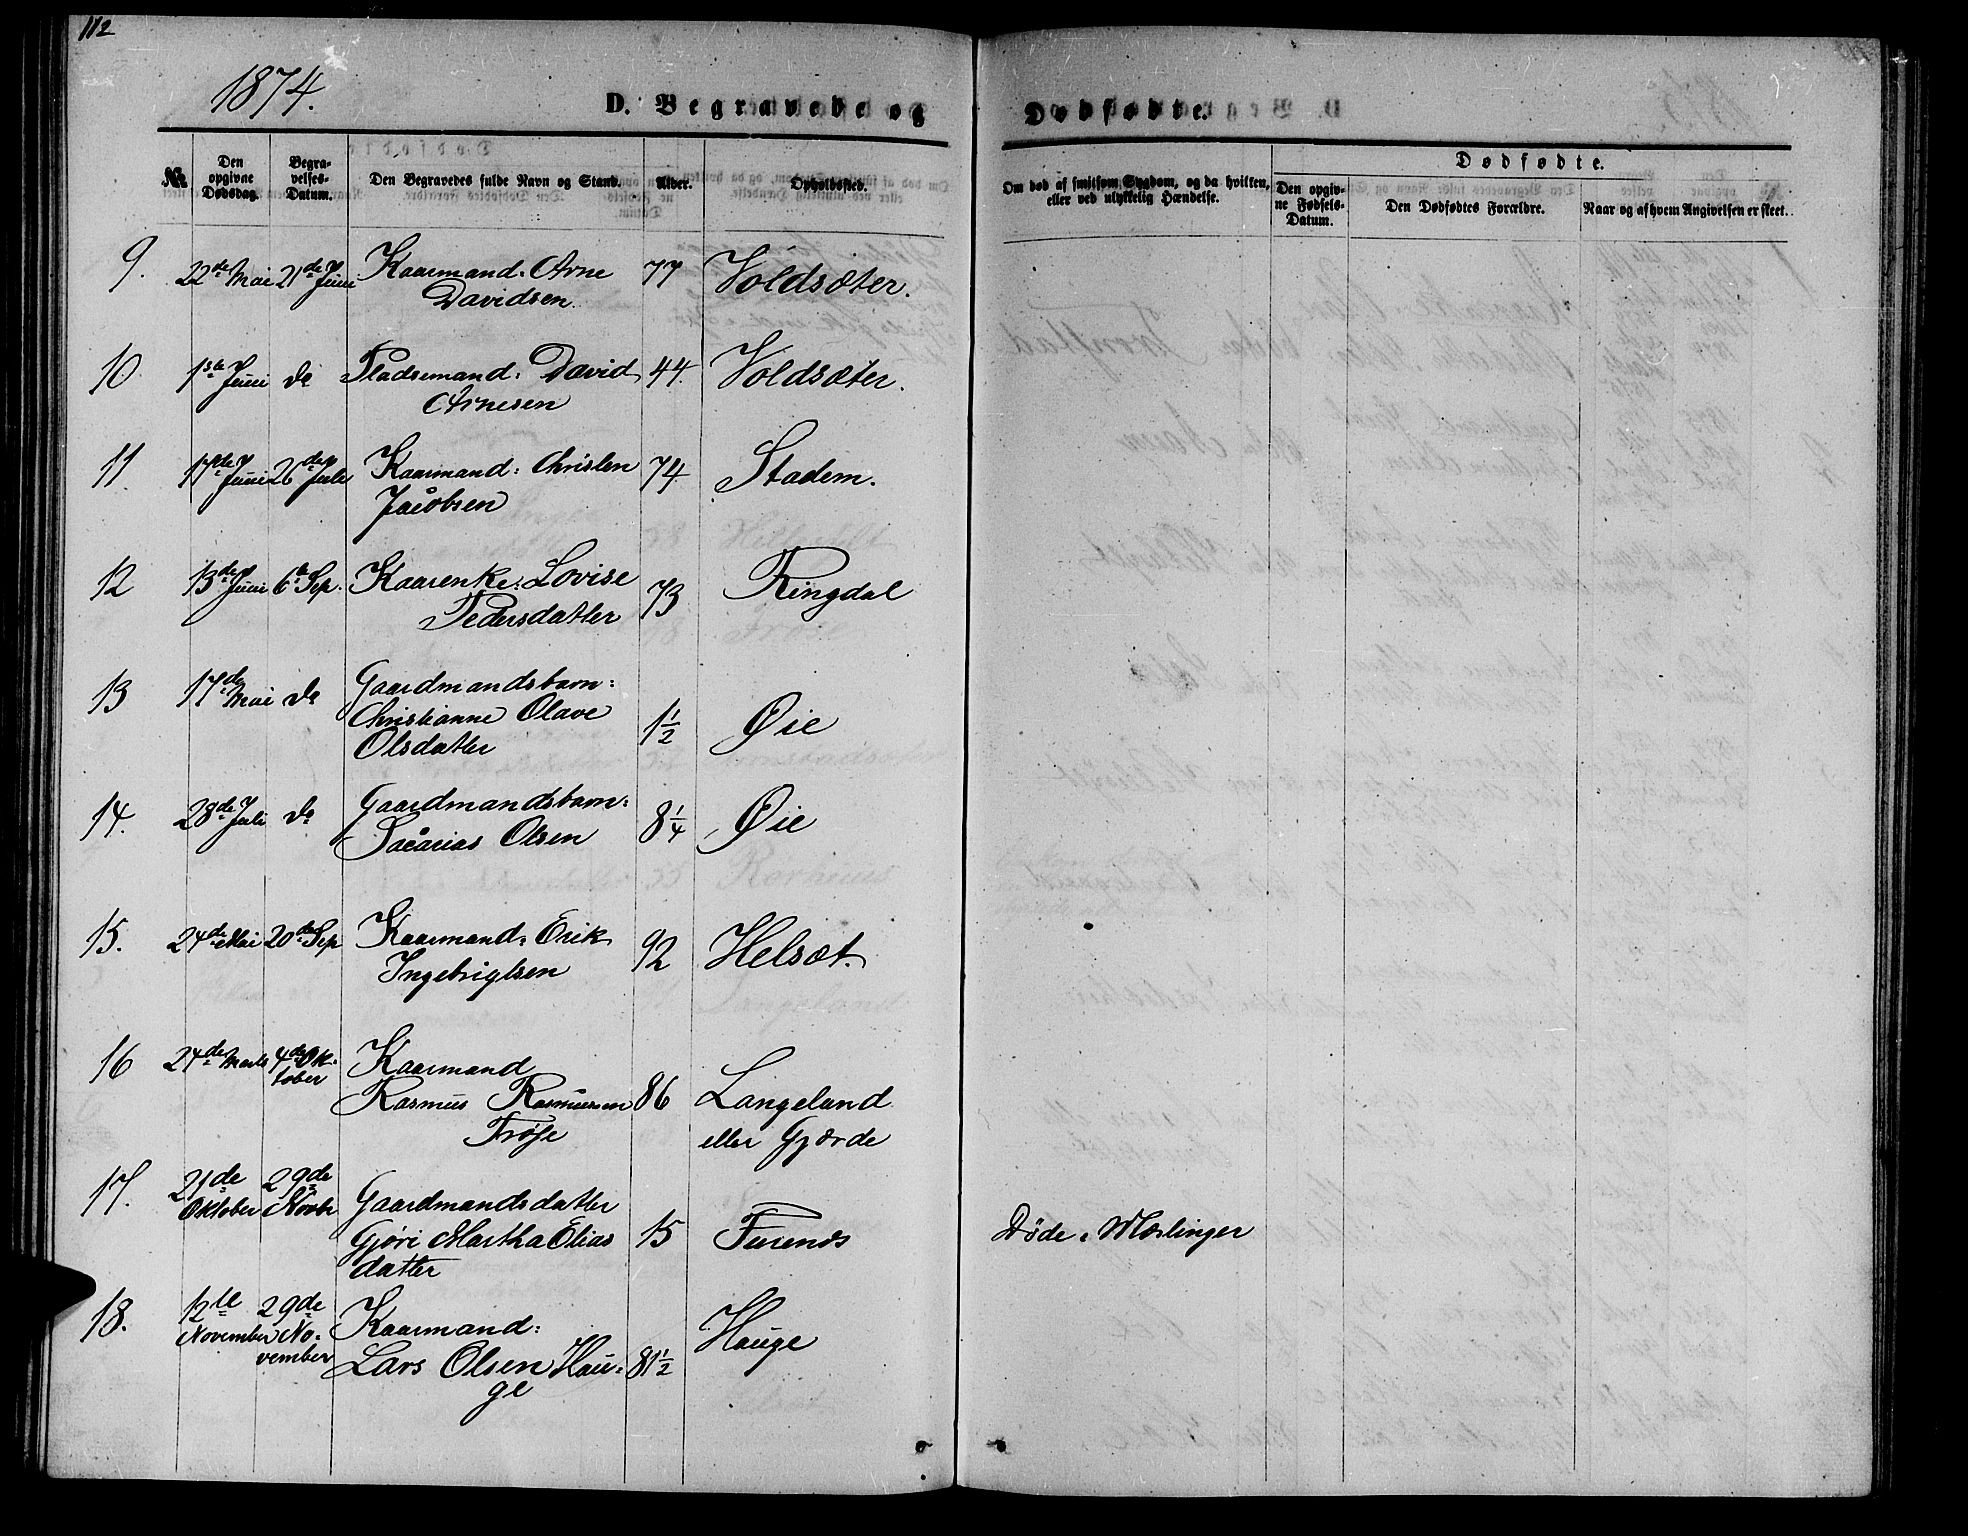 112
1874.
D. Begravede og Dødfødte.
№
Den opgivne Dødsdag.
Begravelses-Datum.
Den Begravedes fulde Navn og Stand.
Alder.
Opholdssted.
Om død af smitsom Sygdom, og da hvilken, eller ved ulykkelig Hændelse.
Dødfødte.
Den opgivne Fødsels-Datum.
Den Dødfødtes Forældre.
Naar og af hvem Angivelsen er skeet.
9. 22de Mai 21de Juni Kaarmand: Arne 77 Voldsæter.
Davidsen
10 1ste Juni do Pladsemand: David 44. Voldsæter.
Arnesen
11. 17de Juni 26de Juli Kaarmand: Christen 74 Stadem.
Jacobsen
12 13de Juni 6te Sep. Kaarenke: Lovise 73 Ringdal
Pedersdatter
13 17de Mai do Gaardmandsbarn:
Christianne Olave 1½ Øie
Olsdatter
14. 28de Juli do Gaardmandsbarn: 8¼ Øie
Sacarias Olsen
15. 24de Mai 20de Sep Kaarmand: Erik 92 Helsæt.
Ingebrigtsen
16 24de Marts 4de Ok-
tober
Kaarmand
Rasmus Rasmussen 86 Langeland
Trøje eller Gjærde
17. 21de 29de
Oktober Novbr Gaardmandsdatter
Gjøri Martha Elias 15 Furenes Døde: Mæslinger
datter
18. 12te 29de
November No-
vember
Kaarmand: Hauge
Lars Olsen Hau- 81½
ge